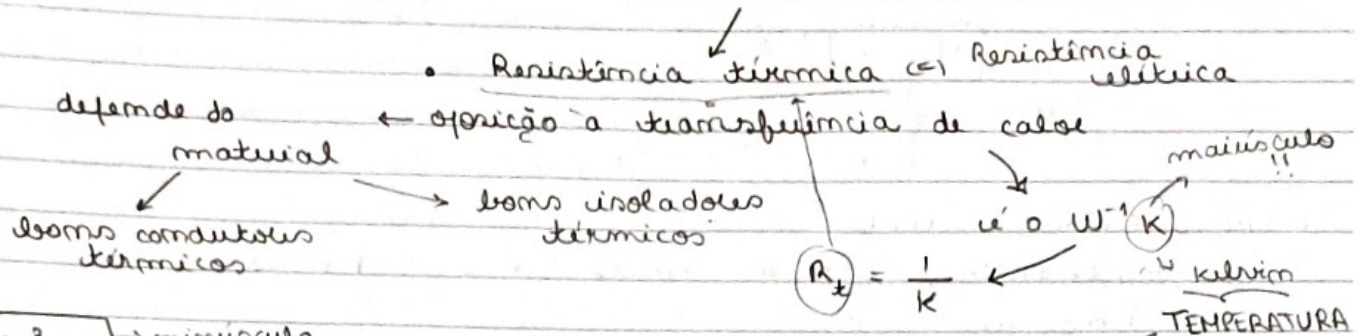 • Resistência térmica (=) Resistência elétrica
depende do material ← oposição a transferência de calor
bons condutores térmicos
bons isoladores térmicos
é o W⁻¹ K
maiúsculo!!
R_t = 1/K
↳ kelvin
TEMPERATURA
minúsculo